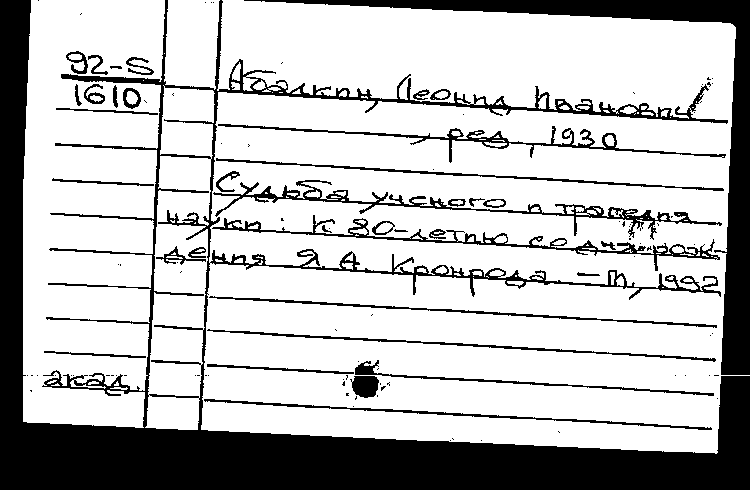 92-S
1610
Абалкин, Леонид Иванович
, ред., 1930
Судьба ученого и трагедия
науки: К 80-летию со дня рож-
дения Я.А. Кронрода. – М., 1992
акад.